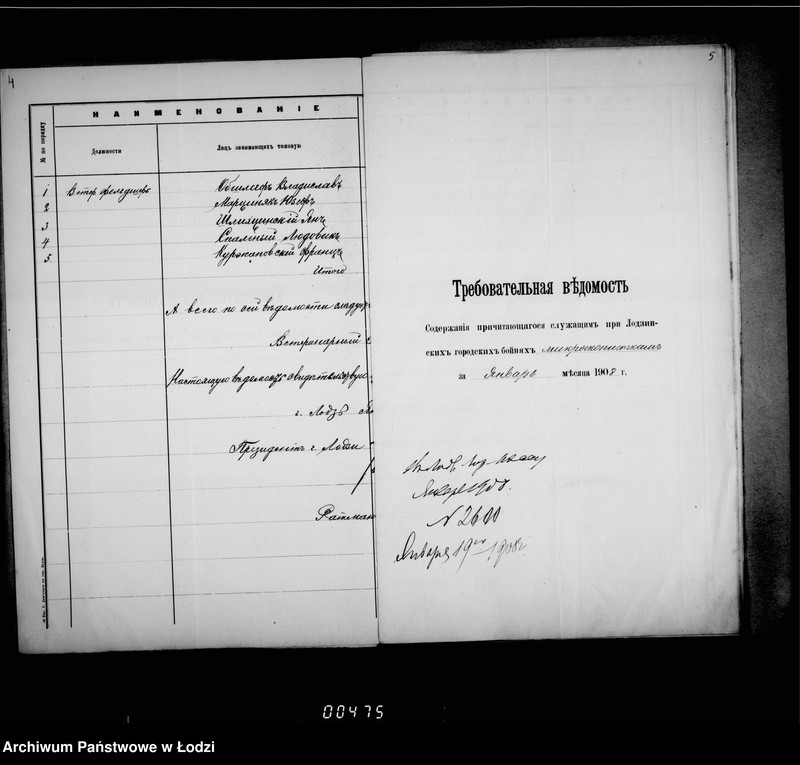 4
НАИМЕНОВАНІЕ
№ по порядку
Должности
Лицъ занимающихъ таковую
1 Ветер. фельдшеръ Владиславъ
2 Марцинякъ
3 Шлязинскій Янъ
4 Спальный Людовикъ
5. Куржановскій Францъ
Итого
А всего по сей вѣдомости слѣдуе
Ветеринарный
Настоящую вѣдомость свидѣтельствую
г. Лодзь
Президентъ г. Лодзи
Ратман
5
Требовательная вѣдомость
Содержанія причитающагося служащимъ при Лодзин-
скихъ городскихъ бойняхъ микроскописткамъ
за Январь мѣсяца 1908 г.
1908.
№ 2600
Января 19 1908 г.
00475
Archiwum Państwowe w Łodzi